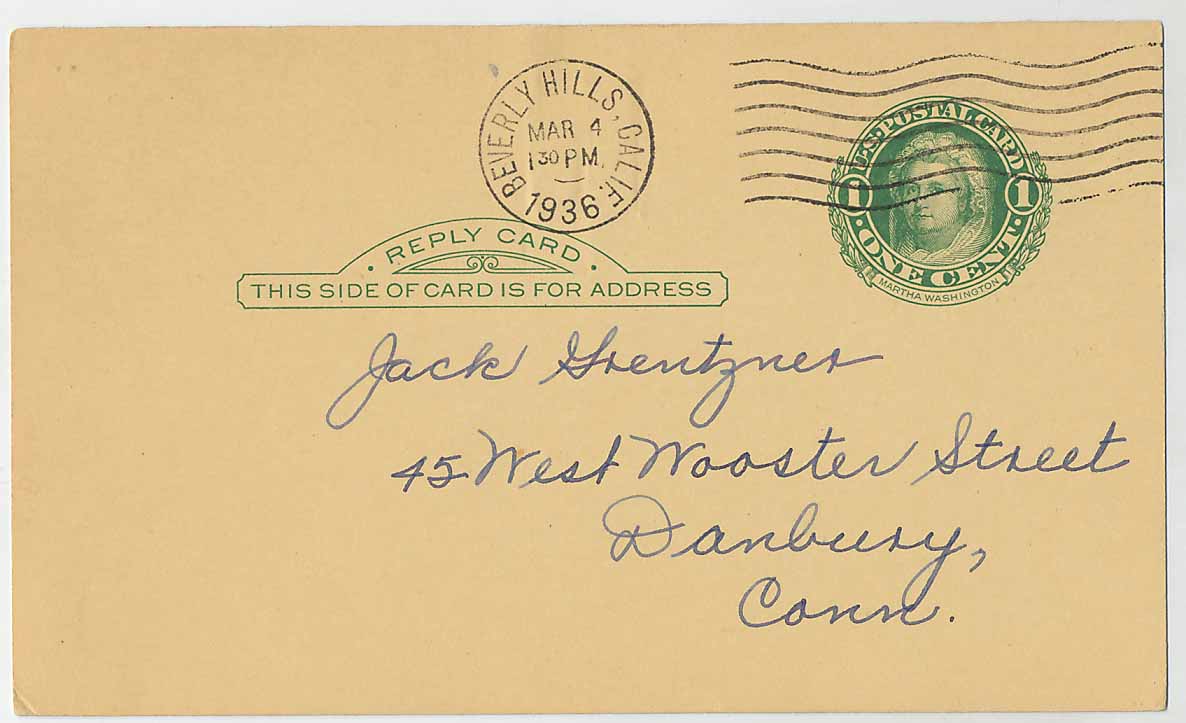 BEVERLY HILLS, CALIF.
MAR 4
1 30 PM
1936
U.S. POSTAL CARD
1 1
ONE CENT
MARTHA WASHINGTON
REPLY CARD
THIS SIDE OF CARD IS FOR ADDRESS
Jack Grentzner
45 West Wooster Street
Danbury,
Conn.